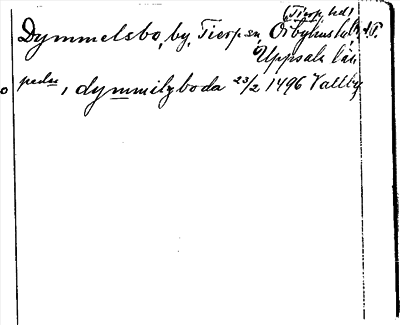 (Tierp hd)
Dymmelsbo, by, Tierp sn, Örbyhus hd,
Uppsala län
pedær, dymmilzboda 23/2 1496 Vallby